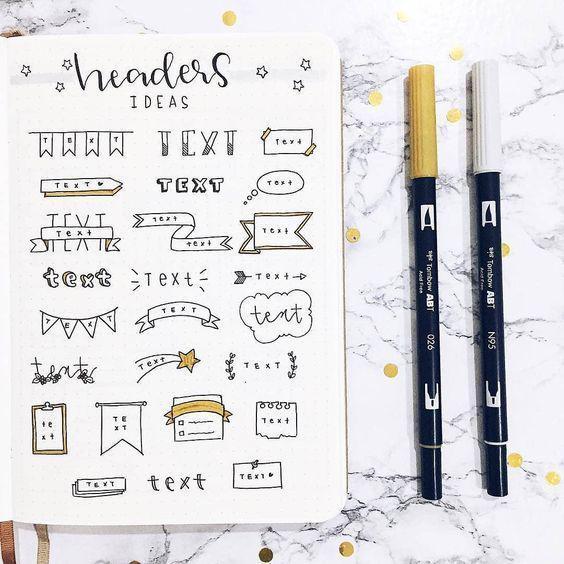 headers
IDEAS
TEXT
TEXT
Text
TEXT ♥
TEXT
TEXT
TEXT
Text
Text
text
Text
text
Text
Text
TEXT
TEXT
text
text
TEXT
TEXT
te
xt
TE
XT
Text
TEXT
text
TEXT ♥
Tombow ABT
Acid Free
026
Tombow ABT
Acid Free
N95